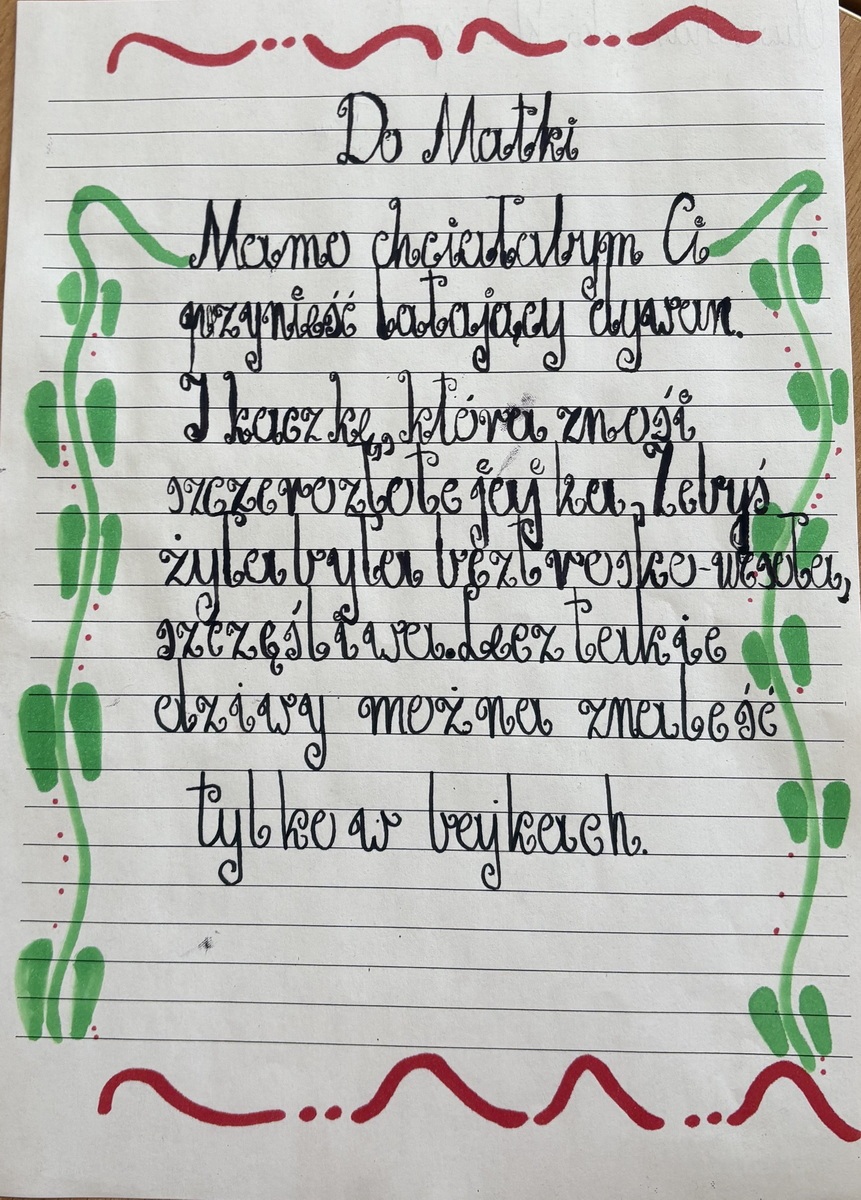 Do Matki
Mamo chciałabym Ci
przynieść latający dywan.
I kaczkę, która znosi
szczerozłote jajka, Żebyś
żyła była beztrosko-wesoła,
szczęśliwa. Lecz takie
dziwy można znaleść
tylko w bajkach.